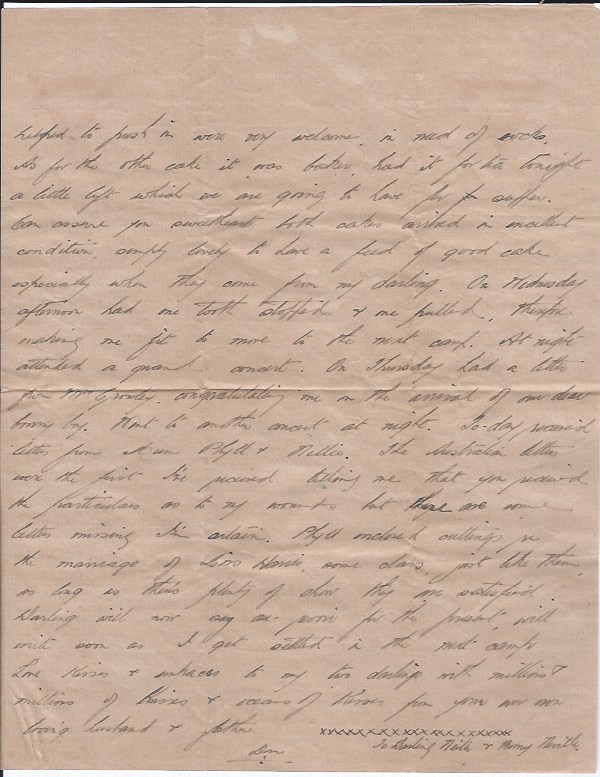 helped to push in were very welcome, in need of socks.
As for the other cake it was baker, had it for tea tonight
a little left which we are going to have for supper.
Can assure you sweetheart both cakes arrived in excellent
condition, simply lovely to have a feed of good cake
especially when they come from my darling. On Wednesday
afternoon had one tooth stopped & one pulled, therefore
making me fit to move to the next camp. At night
attended a grand concert. On Thursday had a letter
from Mrs congratulating me on the arrival of our dear
bonny boy. Went to another concert at night. To-day received
letters from Mum Phyll & Nellie. The Australian letters
were the first I've received telling me that you received
the particulars as to my wounds but there are some
letters missing I'm certain. Phyll enclosed cuttings re
the marriage of Harris, some class just like them,
as long as there's plenty of show they are satisfied.
Darling will now say au-revoir for the present, will
write soon as I get settled in the next camp.
Love Kisses & embraces to my two darlings with millions &
millions of kisses & oceans of kisses from your own
loving husband & father
xxxxxxxxxxxxxxxxxxxxxx
To Darling & Bonny Neville.